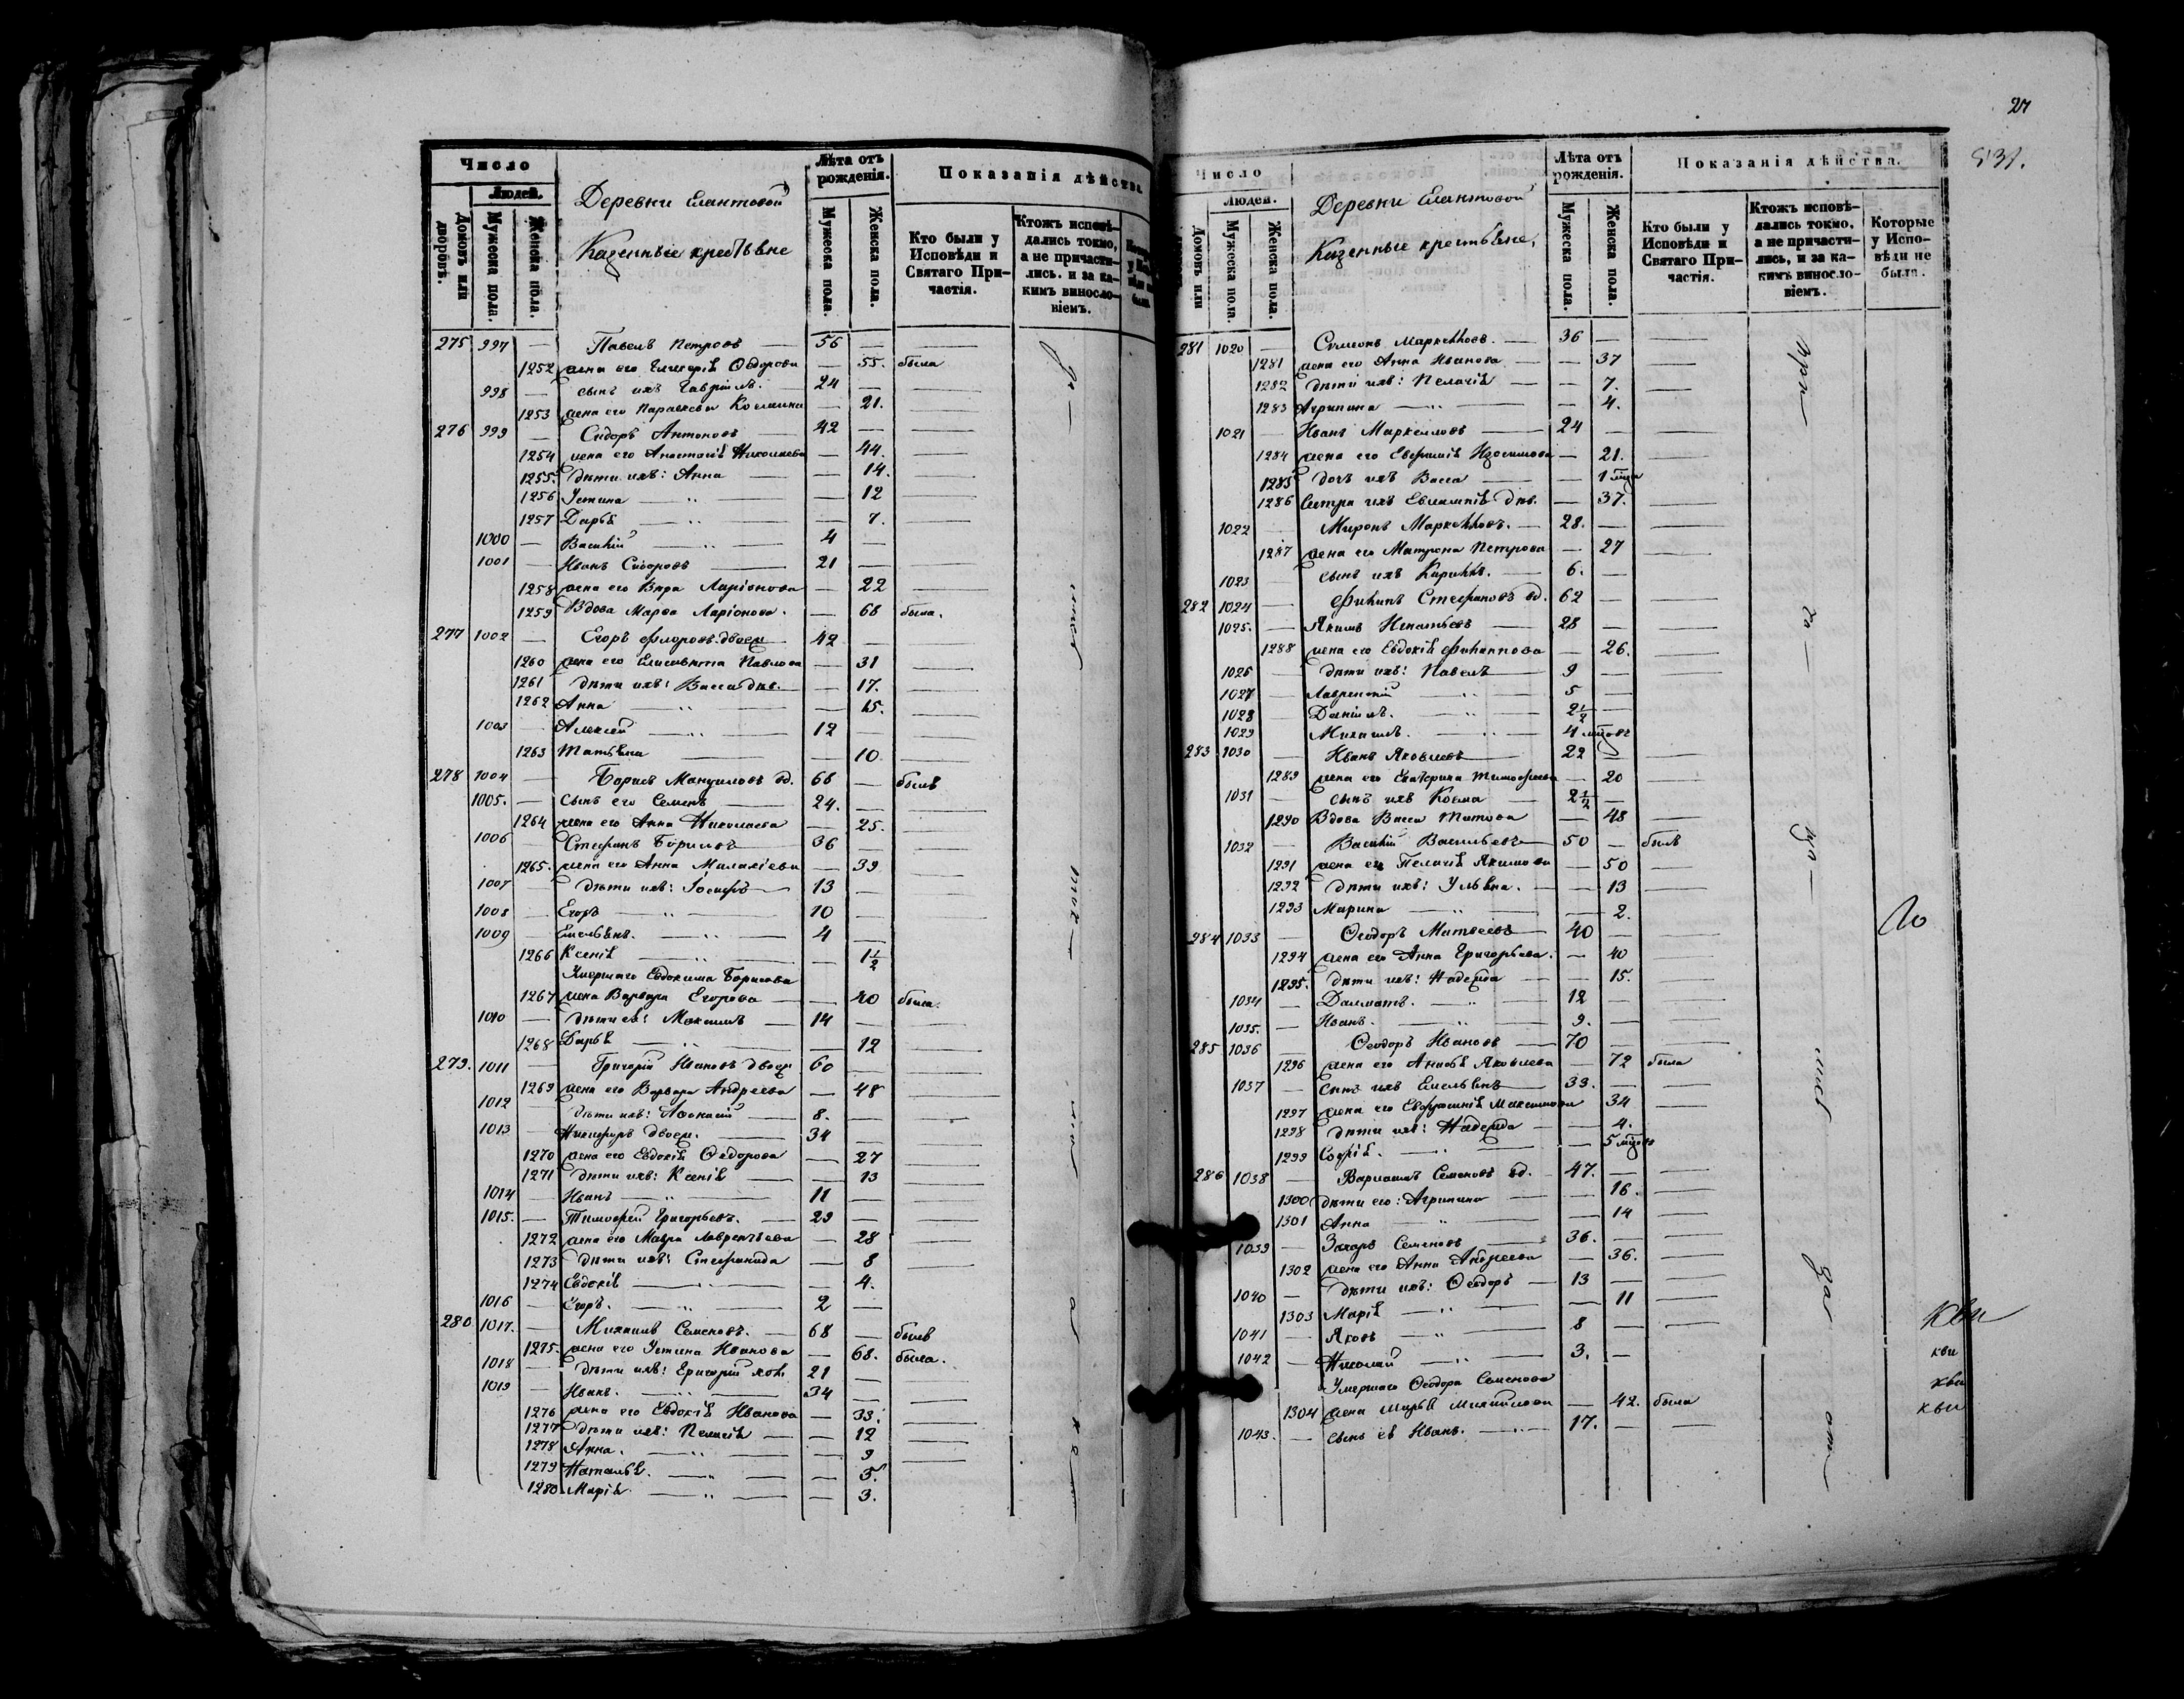 Число
Людей.
Домовъ или дворовъ.
Мужеска пола.
Женска пола.
Деревни Елантовой
Казенные крестьяне
Лѣта отъ рожденія.
Мужеска пола.
Женска пола.
Показанія дѣйства.
Кто были у Исповѣди и Святаго Причастія.
Ктожъ исповѣдались токмо, а не причастились. и за какимъ винословіемъ.
275 997 — Павелъ Петровъ — 56 —
1252 жена его Гликерія Ѳедорова — 55. была
998 — сынъ ихъ Гавріилъ. 24 —
1253 жена его Параскева Козмина — 21.
276 999 — Сидоръ Антоновъ — 42 —
1254 жена его Анастасія Николаева — 44.
1255. дѣти ихъ: Анна — — 14.
1256 Устина — „ — — 12
1257 Дарья — „ — — 7.
1000 — Василій — „ — 4 —
1001 — Иванъ Сидоровъ — 21 —
1258 жена его Вѣра Ларіонова — 22
1259 Вдова Марѳа Ларіонова. — 68 была.
277 1002 — Егоръ Флоровъ двоеж 42 —
1260 жена его Елисавета Павлова — 31
1261 дѣти ихъ: Васса двк. — 17.
1262 Анна — „ — — 15.
1003 — Алексѣй — „ — 12 —
1263 Татьяна — — 10
278 1004 — Борисъ Мануиловъ вд. 68 — былъ
1005. — Сынъ его Семенъ — 24. —
1264 жена его Анна Николаева — 25.
1006 — Стефанъ Борисовъ 36 —
1265. жена его Анна Малахіева — 39
1007 — дѣти ихъ: Іосифъ — 13 —
1008 — Егоръ — „ — 10 —
1009 — Емельянъ. — „ — 4 —
1266 Ксенія — „ — — 1½
Умершаго Евдокима Борисова
1267 жена Варвара Егорова — — 40 была.
1010 — дѣти ея: Максимъ — 14 —
1268 Дарья — „ — — 12
279. 1011 — Григорій Ивановъ двоеж 60 —
1269 жена его Варвара Андреева — 48
1012 — дѣти ихъ: Аѳонасій — 8. —
1013 — Никифоръ двоеж. — 34 —
1270 жена его Евдокія Ѳедорова — 27
1271 дѣти ихъ: Ксенія — — 13
1014 — Иванъ — „ — 11 —
1015. — Тимофей Григорьевъ. — 29 —
1272 жена его Мавра Лаврентьева — 28
1273 дѣти ихъ: Стефанида — 8
1274 Евдокія — „ — — 4.
1016 — Егоръ. — „ — 2 —
280 1017. — Михаилъ Семеновъ. — 68 — былъ
1275. жена его Устина Иванова — 68. была.
1018 — дѣти ихъ: Григорій хол. 21 —
1019 — Иванъ. — „ — 34 —
1276 жена его Евдокія Иванова — 33.
1277 дѣти ихъ: Пелагія — — 12
1278 Анна. — „ — — 9
1279 Наталья. — „ — — 5.
1280 Марія — „ — — 3.
27
831.
Число
Людей.
Домовъ или
Мужеска пола.
Женска пола.
Деревни Елантовой
Казенные крестьяне,
Лѣта отъ рожденія.
Мужеска пола.
Женска пола.
Показанія дѣйства.
Кто были у Исповѣди и Святаго Причастія.
Ктожъ исповѣдались токмо, а не причастились, и за какимъ винословіемъ.
Которые у Исповѣди не были.
281 1020 — Симеонъ Маркелловъ. — 36 —
1281 жена его Анна Иванова — — 37
1282 дѣти ихъ: Пелагія — — 7.
1283 Агрипина — „ — — 4.
1021 — Иванъ Маркелловъ — 24 —
1284 жена его Евфимія Изосимова — 21.
1285 дочь ихъ Васса — — 1 мца
1286 Сестра ихъ Евлампія двк. — 37.
1022 — Миронъ Маркелловъ. — 28. —
1287 жена его Матрона Петрова — 27
1023 — сынъ ихъ Кириллъ. — 6. —
282 1024 — Филипъ Стефановъ вд. 62 —
1025. — Якимъ Игнатьевъ — 28 —
1288 жена его Евдокія Филиппова — 26.
1026 — дѣти ихъ: Павелъ — 9 —
1027 — Лаврентій „ — 5 —
1028 Даніилъ. — „ — 2½ —
1029 Михаилъ. — „ — 4 мцовъ
283 1030 — Иванъ Яковлевъ — 22 —
1289 жена его Екатерина Тимофеева — 20
1031 — сынъ ихъ Козма — 2½ —
1290 Вдова Васса Титова — 48
1032 — Василій Васильевъ — 50 — былъ
1291 жена его Пелагія Якимова — 50
1292 дѣти ихъ: Ульяна. — — 13
1293 Марина — „ — — 2.
284 1033 — Ѳеодоръ Матвеевъ — 40 —
1294 жена его Анна Григорьева. — 40
1295. дѣти ихъ: Надежда — — 15.
1034 — Далматъ. — „ — 12 —
1035. — Иванъ. — „ — 9. —
285 1036 — Ѳеодоръ Ивановъ — 70 —
1296 жена его Анисья Яковлева — 72 была
1037 — Сынъ ихъ Емельянъ — 33. —
1297 жена его Евфросинія Максимова 34
1298 дѣти ихъ: Надежда — — 4.
1299 Софія. — „ — — 5 мцовъ
286 1038 — Варлаамъ Семеновъ вд. — 47. —
1300 дѣти его: Агрипина — — 16.
1301 Анна — „ — — 14
1039 — Захаръ Семеновъ — 36. —
1302 жена его Анна Андреева — 36.
1040 — дѣти ихъ: Ѳеодоръ — 13 —
1303 Марія — „ — — 11
1041 — Яковъ — „ — 8 —
1042 — Николай — „ — 3. —
Умершаго Ѳеодора Семенова
1304 жена Марья Михайлова — 42. была
1043. — сынъ ея Иванъ. — „ — 17. —